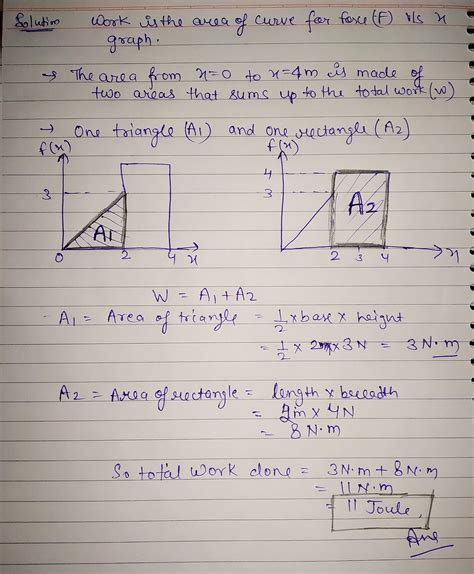 Solution Work is the area of curve for force (F) v/s x
graph.
→ The area from x=0 to x=4m is made of
two areas that sums up to the total work (W)
→ One triangle (A1) and one rectangle (A2)
f(x)
3
A1
0 2 4 x
f(x)
4
3
A2
2 3 4 x
W = A1 + A2
A1 = Area of triangle = 1/2 x base x height
= 1/2 x 2m x 3N = 3N.m
A2 = Area of rectangle = length x breadth
= 2m x 4N
= 8 N.m
So total work done = 3N.m + 8N.m
= 11 N.m
= 11 Joule,
Ans